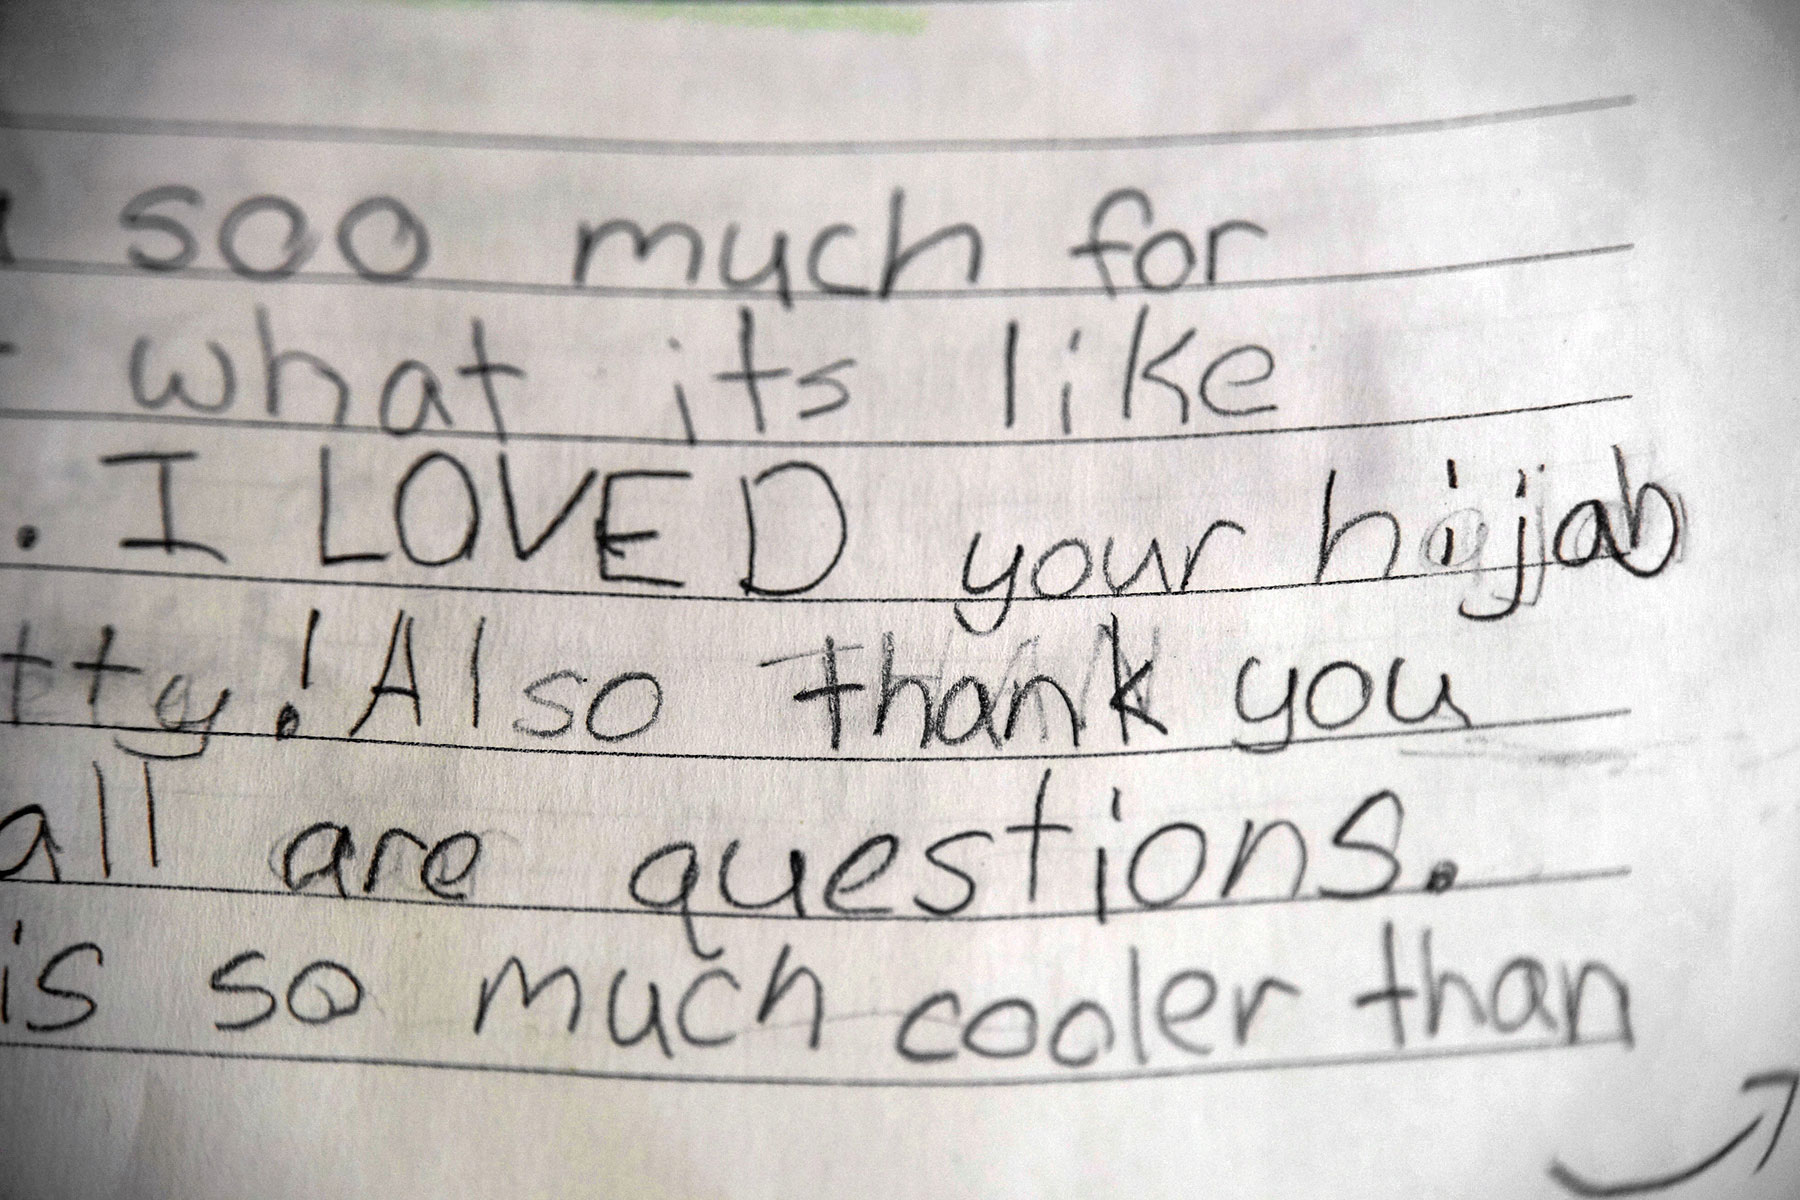 soo much for
what its like
. I LOVED your hijab
tty! Also thank you
all are questions.
is so much cooler than